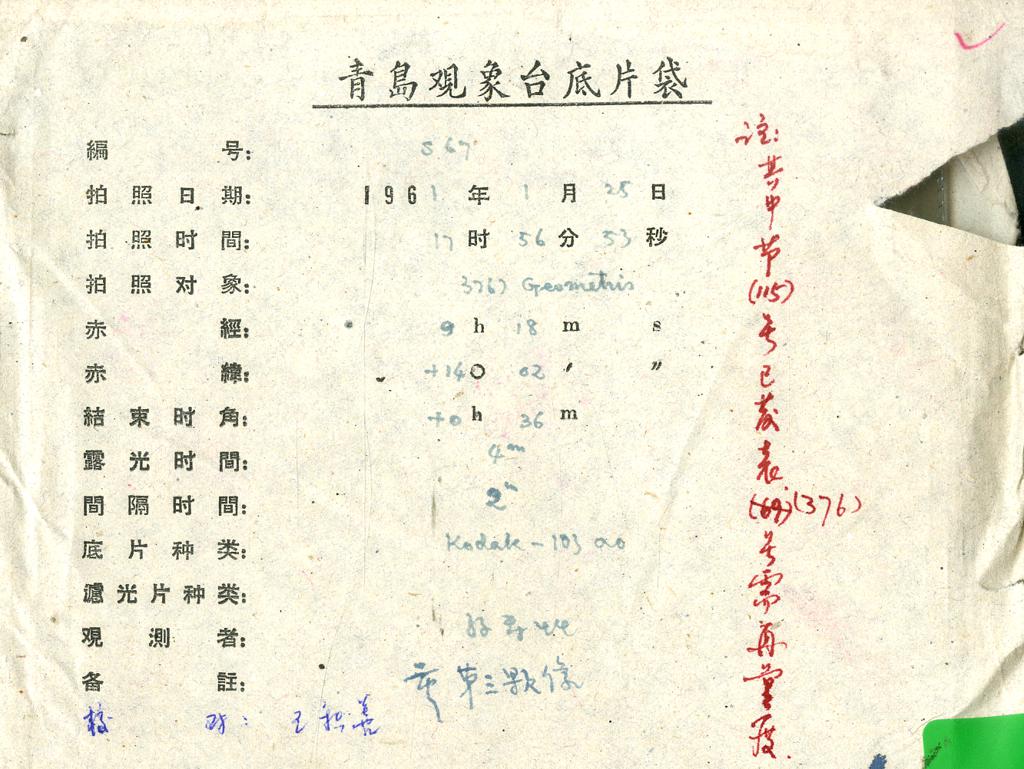 青島观象台底片袋
編号: S67
拍照日期: 1961年1月25日
拍照时間: 17时56分53秒
拍照对象: 376) Geometris
赤經: 9h 18m s
赤緯: +14° 02′ ″
結束时角: +0h 36m
露光时間: 4m
間隔时間: 2m
底片种类: Kodak-103 ao
濾光片种类:
观測者:
备註: 第三顆像
校对: 王积善
註: 其中节(115)号已发表(69)(376)号需再量度.